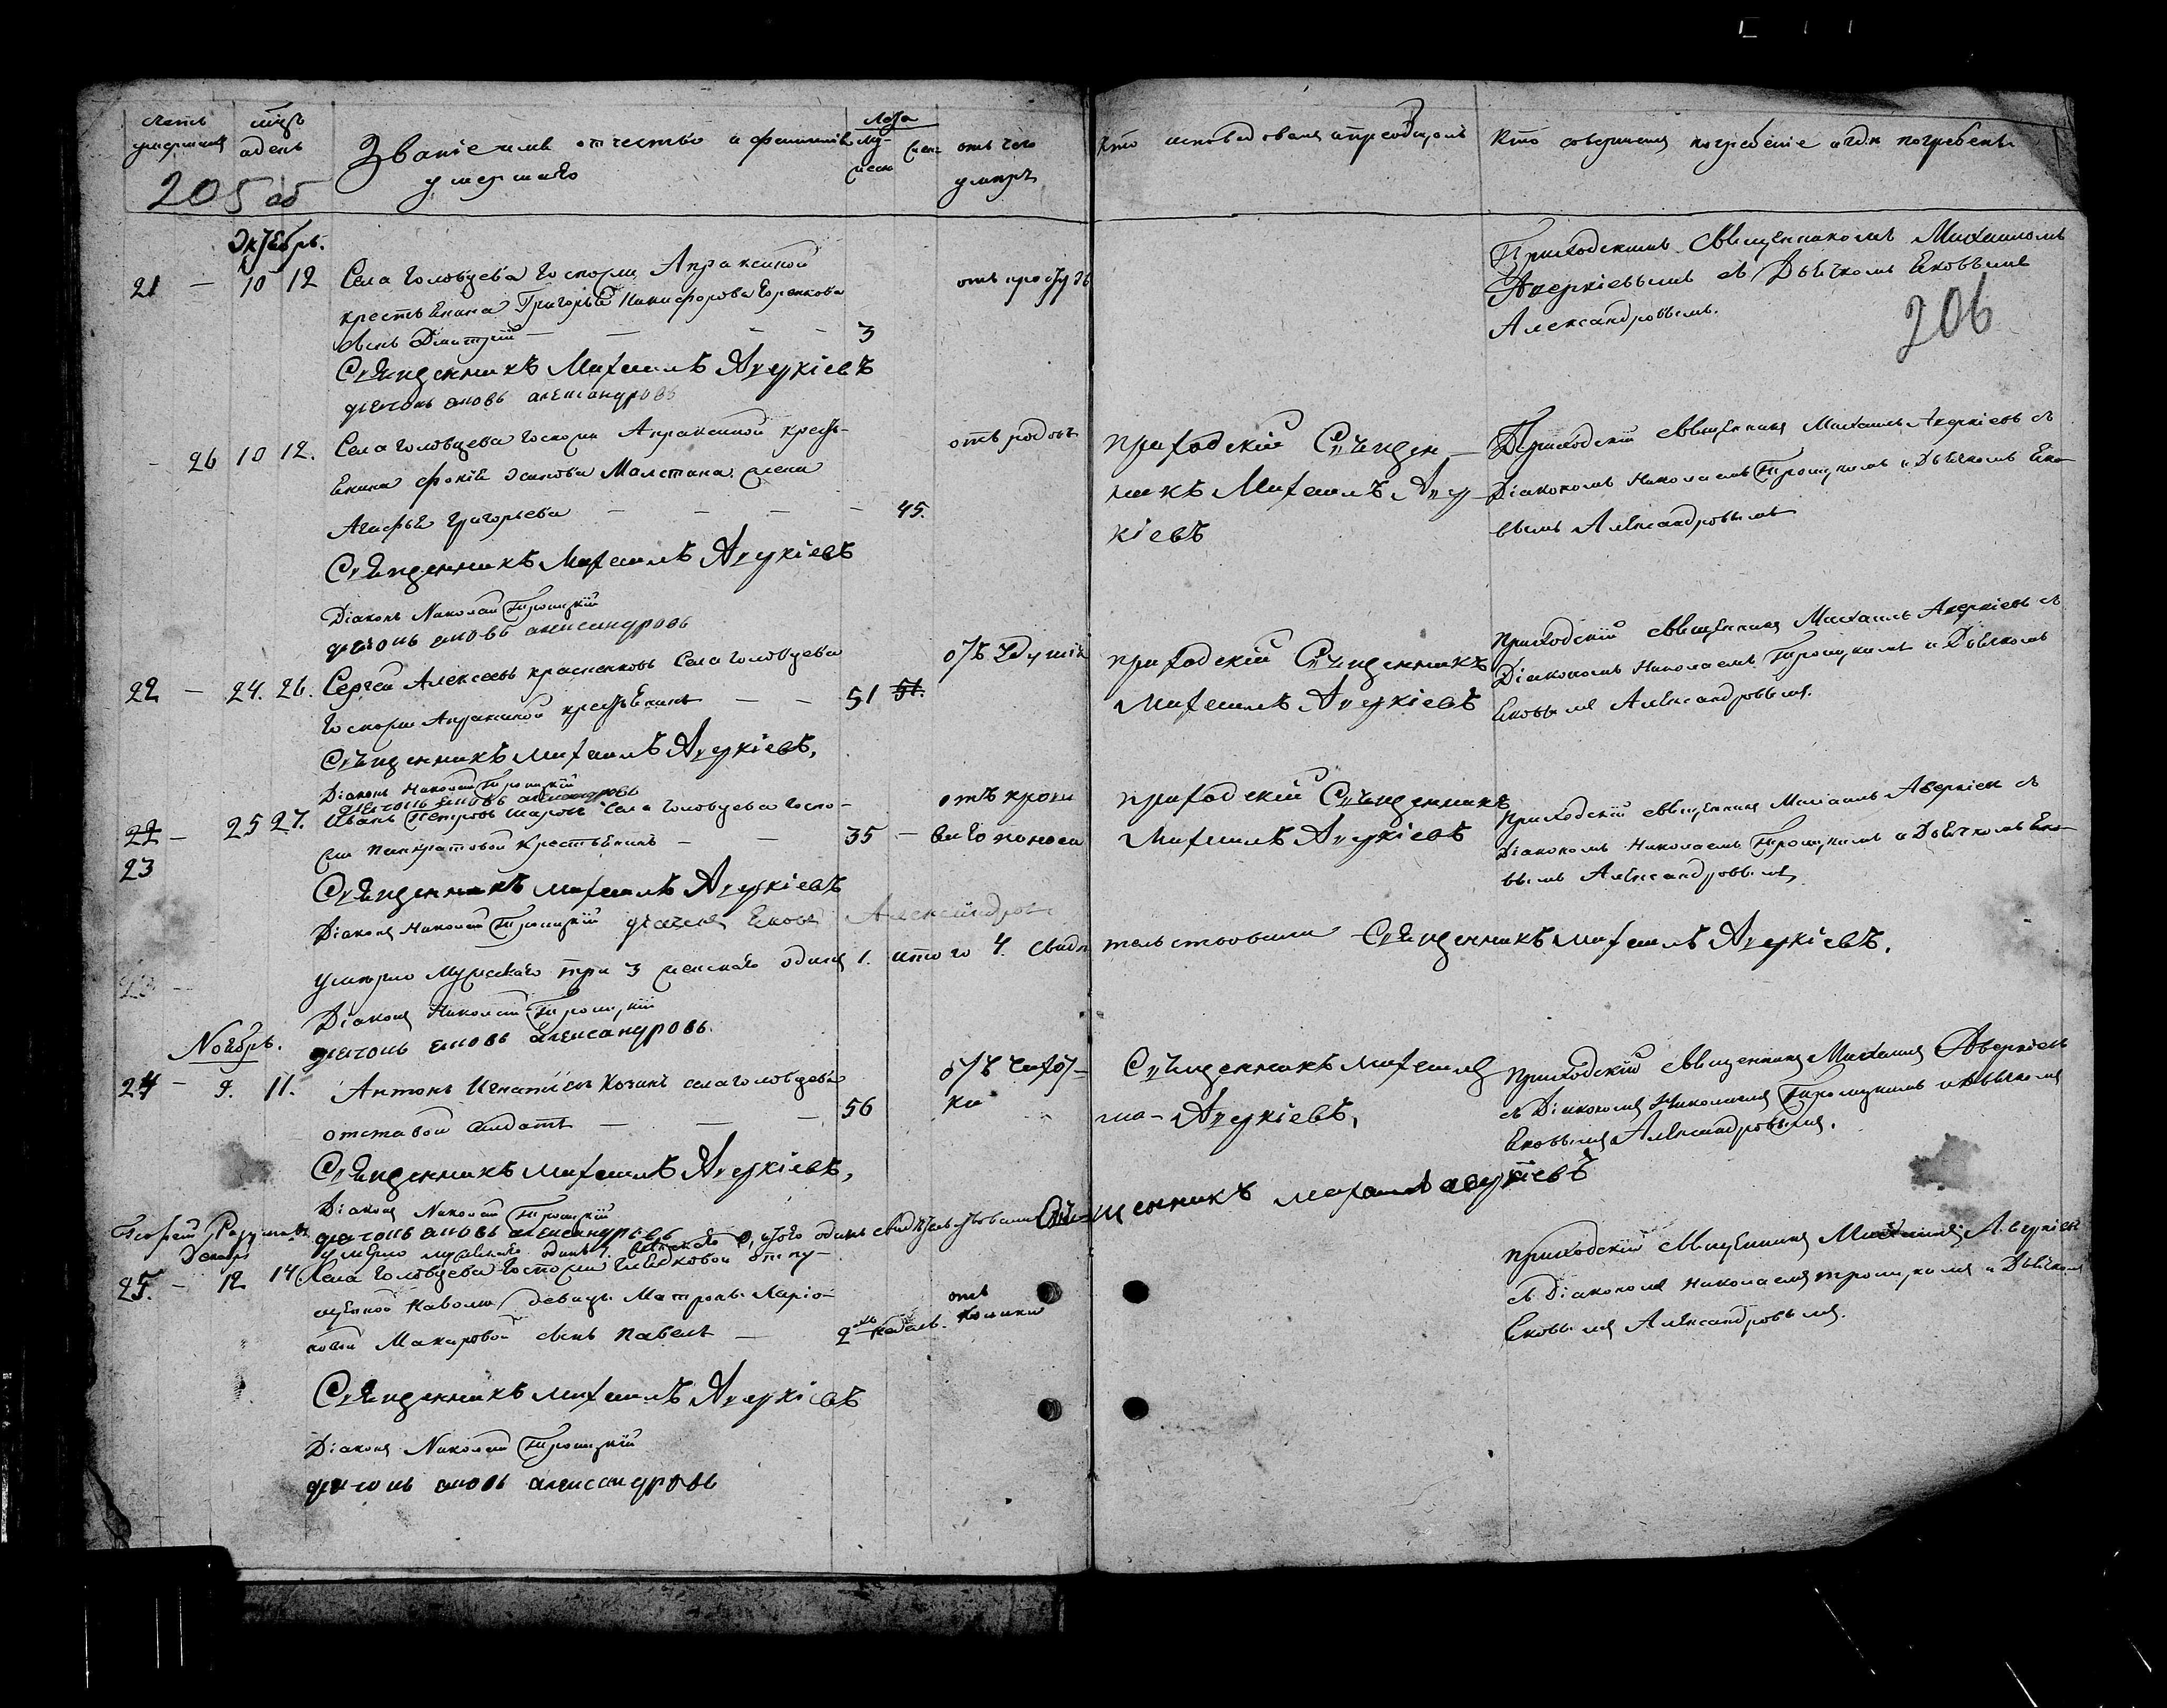 счетъ умершихъ
мцъ а день
Званіе имя отчество и фамилія
умершаго
Лѣта
му-
жеск
женс
отъ чего
умеръ
кто исповедовалъ и пріобщалъ
Кто совершалъ погребеніе и гдѣ погребенъ
205 об
Октебрь.
21 — 10 12 Села Головцева Госпожи Апраксиной
крестьенина Григорья Никифорова
сынъ Дмитрій — — — — 3
отъ простуды
Приходскимъ Священникомъ Михаиломъ
Аверкіевымъ съ Дьячкомъ Ековымъ
Александровымъ.
206
Священникъ Михаилъ Аверкіевъ
дьячокъ аковъ александровъ
— 26 10 12. Села Головцева Госпожи Апраксиной кресть-
енина Фокіе Осипова жена
Агафья Григорьева — — — — 45.
отъ родовъ
приходскій Священ-
никъ Михаилъ Авер-
кіевъ
Приходскій священникъ Михаилъ Аверкіевъ съ
Діакономъ Николаемъ Троицкимъ и Дьячкомъ Еко-
вымъ Александровымъ
Священникъ Михаилъ Аверкіевъ
Діаконъ Николай Троицкій
дьячокъ аковъ александровъ
22 — 24. 26. Сергей Алексеевъ Села Головцева
Госпожи Апраксиной крестьенинъ — — 51 51.
приходскій Священникъ
Михаилъ Аверкіевъ
Приходскій священникъ Михаилъ Аверкіевъ съ
Діакономъ Николаемъ Троицкимъ и Дьячкомъ
Ековымъ Александровымъ.
Священникъ михаилъ Аверкіевъ,
Діаконъ Николай Троицкій
дьячокъ аковъ александровъ
22 — 25 27. Иванъ Петровъ Шаровъ Села Головцева Госпо-
жи Панкратовой Крестьенинъ — — 35 —
23
отъ крова
ваго поноса
приходскій Священникъ
Михаилъ Аверкіевъ
Приходскій священникъ Михаилъ Аверкіевъ съ
Діакономъ Николаемъ Троицкимъ и Дьячкомъ Еко-
вымъ Александровымъ
Священникъ михаилъ Аверкіевъ
Діаконъ Николай Троицкій дьячекъ Ековъ Александровъ
умерло Мужскаго три 3 женскаго одинъ 1. итого 4. свидѣтельствовали Священникъ михаилъ Аверкіевъ.
Діаконъ Николай Троицкій
дьячокъ аковъ александровъ.
Ноебрь.
24 — 9. 11. Антонъ Игнатіевъ села головцева
отставой салдатъ — — — 56
отъ чахот-
ки
Священникъ михаилъ
Аверкіевъ,
Приходскій Священникъ Михаилъ Аверкіевъ
съ Діакономъ Николаемъ Троицкимъ и дьячкомъ
Ековымъ Александровымъ.
Священникъ михаилъ Аверкіевъ,
Діаконъ Николай Троицкій
дьячокъ аковъ александровъ
умерло мужскаго одинъ 1. женскаго 0, итого одинъ свидѣтельствовали Священникъ михаилъ аверкіевъ
Декабрь
25. — 12 14. Села Головцева Госпожи отпу-
щенной наволю девицы Матроны Ларіо-
новой Макаровой сынъ Павелъ — 2 недель.
отъ
Приходскій Священникъ Михаилъ Аверкіевъ
съ Діакономъ Николаемъ Троицкимъ и Дьячкомъ
Ековымъ Александровымъ.
Священникъ михаилъ Аверкіевъ
Діаконъ Николай Троицкій
дьячокъ аковъ александровъ